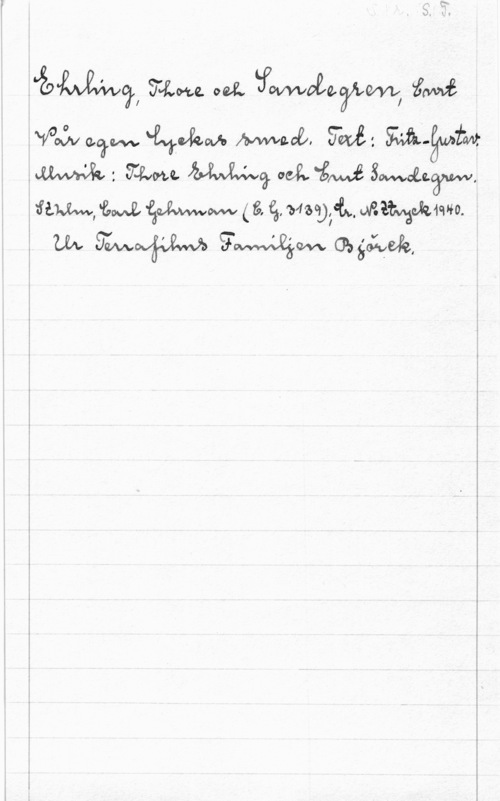 S. T.
Ehrling, Thore och Sandegren, Curt
Vår egen lyckas smed. Text: Fritz-Gustav.
Musik: Thore Ehrling och Curt Sandegren.
Sthlm, Carl Gehrman (C. G. 3139); tr. 1940.
Ur Terrafilms Familjen Björck.